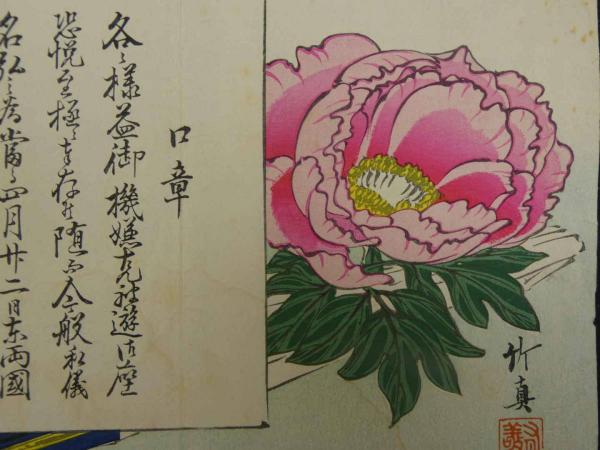 口章
各〻様益御機嫌克被遊御座
恐悦至極ニ奉存候随而今般私儀
名弘之為當ル四月廿二日東両國
竹真